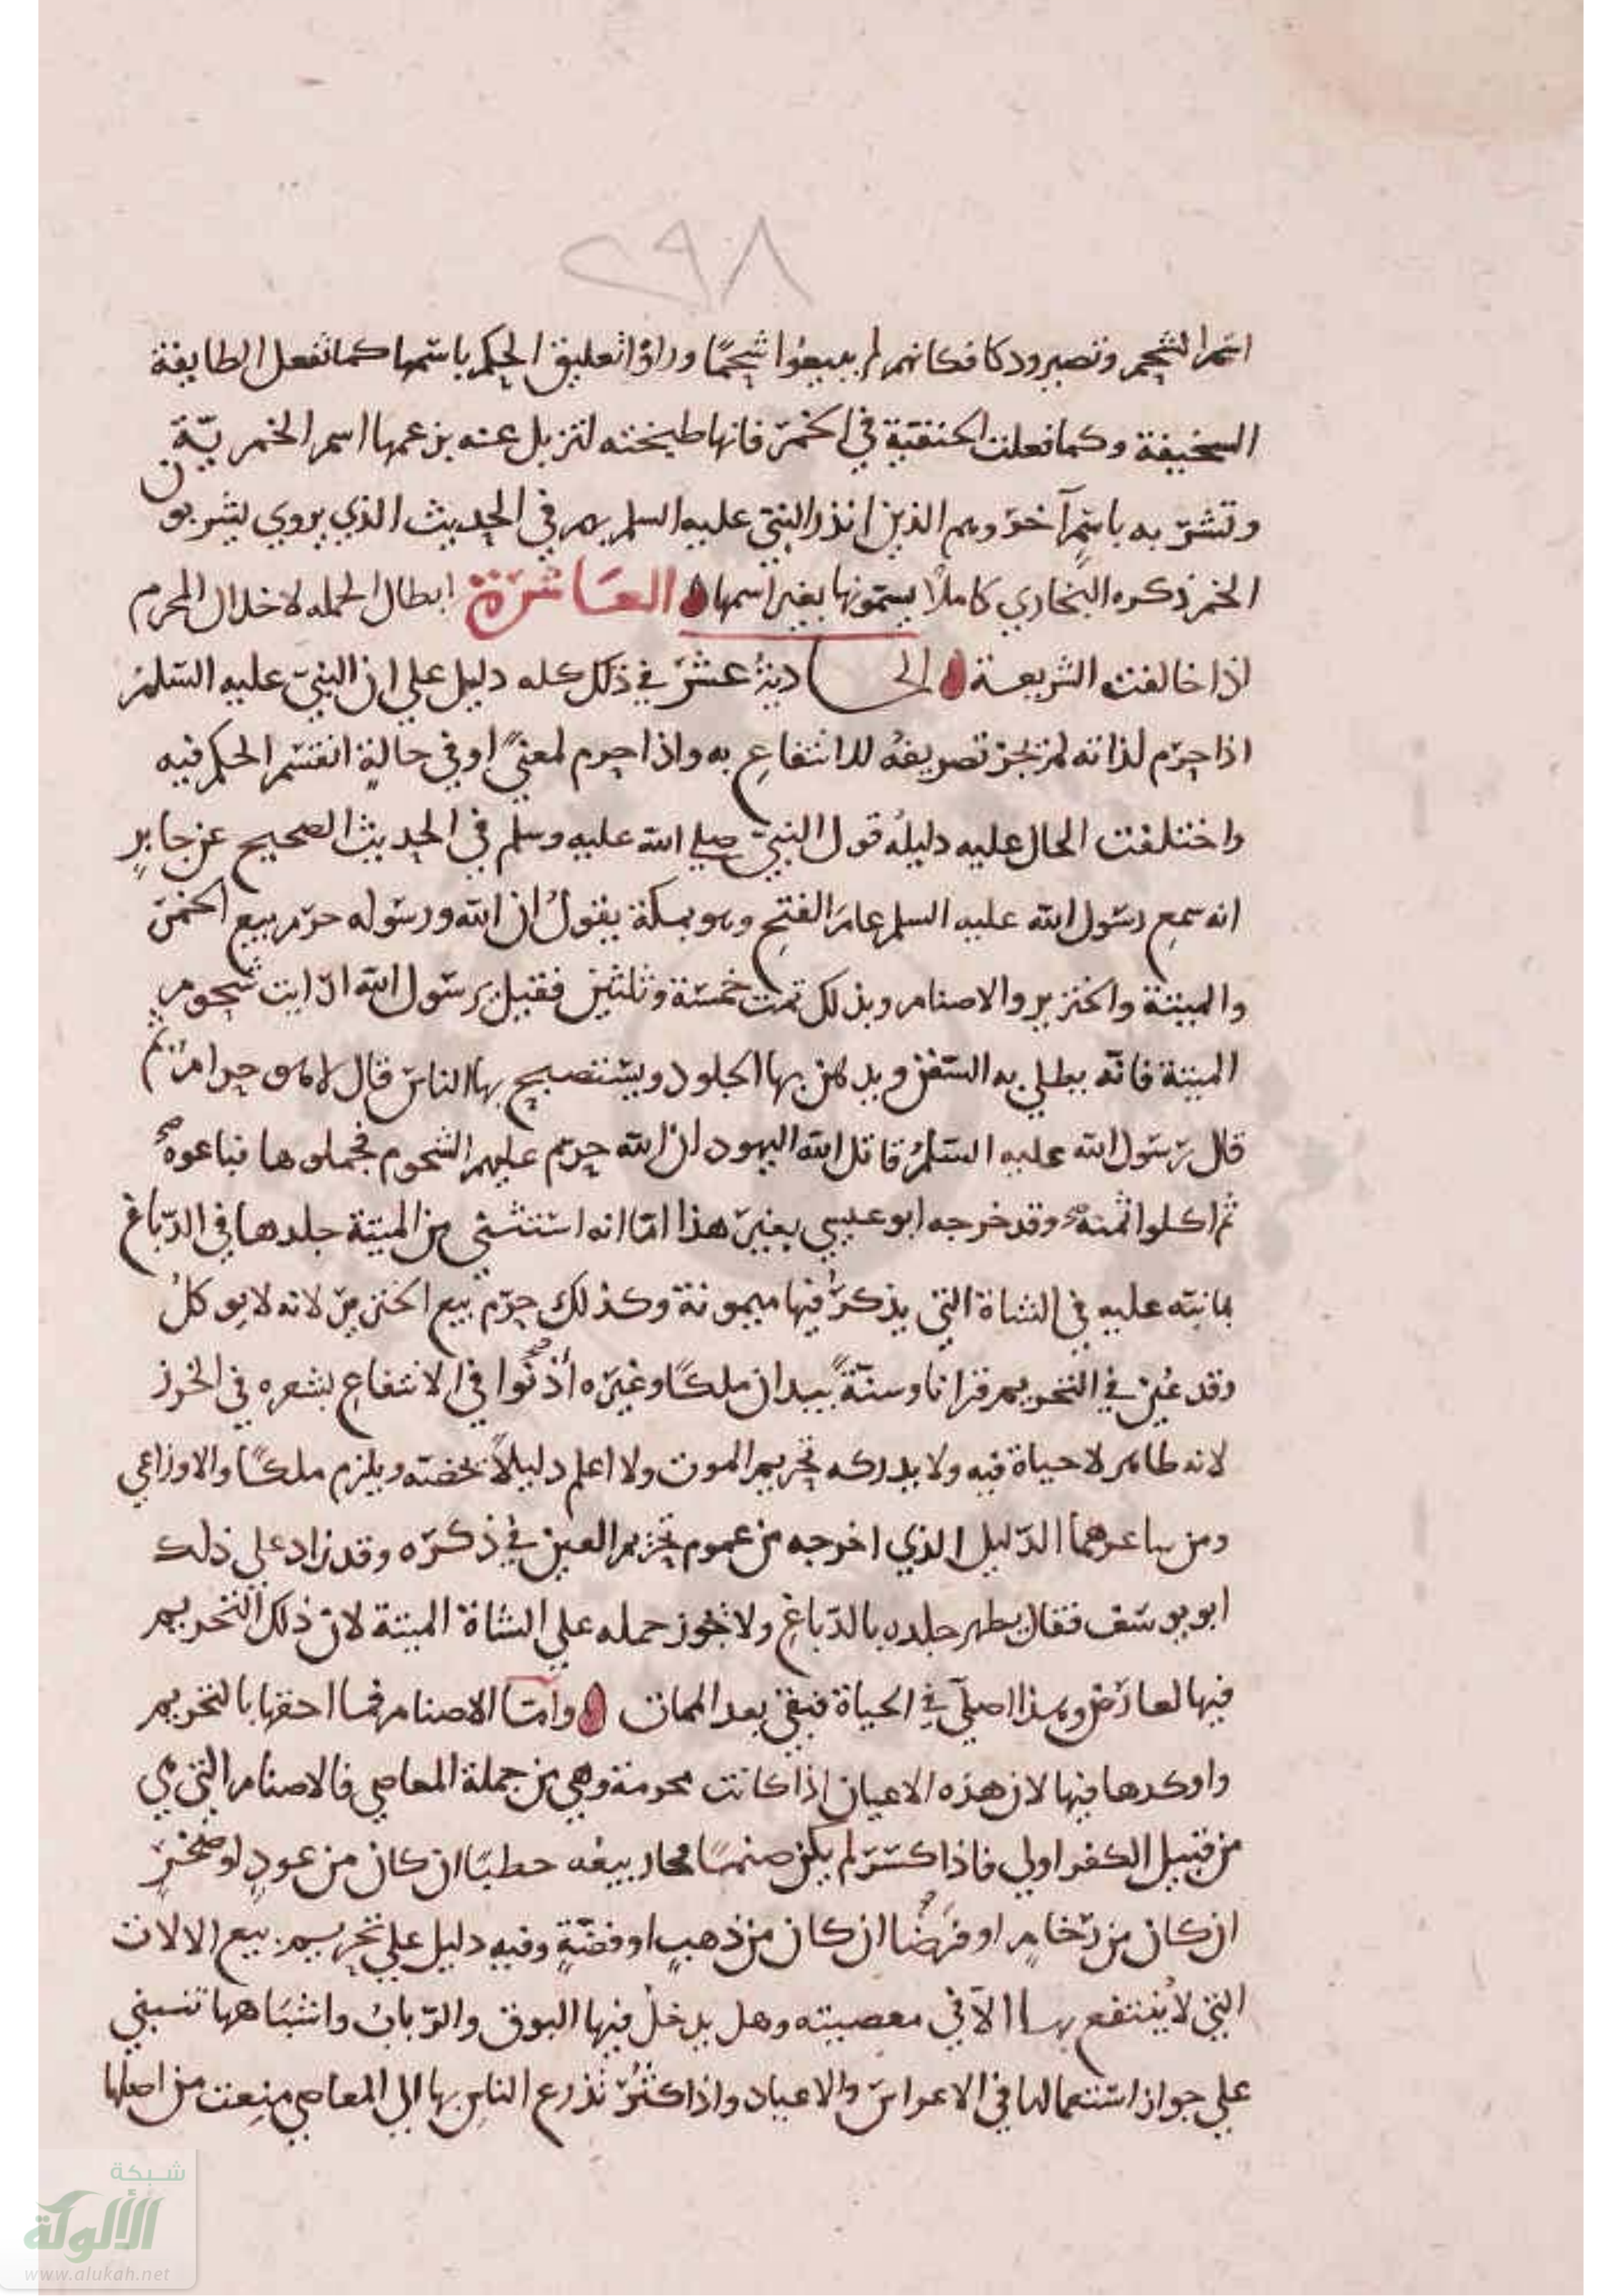 ٢٩٨
اسم الشحم وتصير ودكا فكانهم لم يبيعوا شحمًا وراوا تعليق الحكم باسمها كما تفعل الطايفة
السخيفة وكما فعلت الحنفية في الخمر فانها طبخته لتزيل عنه بزعمها اسم الخمرية
وتشربه باسمٍ آخر وهم الذين انذر النبيّ عليه السلم بهم في الحديث الذي يروي يشربون
الخمر ذكره البخاري كاملًا يسمّونها بغير اسمها العَاشرَة ابطال الحمله لاخلال المحرم
اذا خالفت الشريعة الحاديةُ عشر في ذلك كله دليل علي ان النبيّ عليه السّلمُ
اذا حرّم لذاته لم تجز تصريفهُ للانتفاعِ به واذا حرم لمعنيً او في حالةٍ انقسم الحكم فيه
واختلفت الحال عليه دليلُه قول النبيّ صلى الله عليه وسلم في الحديث الصحيح عن جابرٍ
انه سمع رسول الله عليه السلم عامَ الفتحِ وهو بمكة يقولُ ان الله ورسوله حرّم بيع الخمر
والميتة والخنزير والاصنام وبذلك تمت خمسة وثلثين فقيل يرسول الله ارايت شحوم
الميتة فانّه يطلي به السّفن ويدهن بها الجلود ويستصبح بها الناس قال لا هو حرام ثم
قال رسول الله عليه السّلمُ قاتل الله اليهود ان الله حرّم عليهم الشحوم فجملوها فباعوهُ صح
ثم اكلوا ثمنه وقد خرجه ابو عيسي بغير هذا امّا انه استثني من الميتة جلدها في الدّباغ
بما نبّه عليه في الشاة التي يذكرُ فيها ميمونة وكذلك حرّم بيع الخنزير لانه لا يوكلُ
وقد عُين في التحريم قرانا وسنّةً بيد ان ملكًا وغيره أذنُوا في الانتفاعِ بشعره في الخرز
لانه طاهر لا حياة فيه ولا يدركه تحريم الموت ولا اعلم دليلًا يخصّه ويلزم ملكًا والاوزاعي
ومن ساعدهما الدّليل الذي اخرجه من عموم تحريم العين في ذكره وقد زاد علي ذلك
ابو يوسف فقال يطهر جلده بالدّباغِ ولا يجوز حمله علي الشاة الميتة لان ذلك التحريم
فيها لعارض وهذا اصليّ في الحياة فبقي بعد الممات وامّا الاصنام فما احقها بالتحريم
واوكدها فيها لان هذه الاعيان اذا كانت محرمة وهي من جملة المعاصي فالاصنام التي هي
من قبيل الكفر اولي فاذا كسّر لم يكن صنمًا فجاز بيعُه حطبًا ان كان من عودٍ او صخرٍ
ان كان من رخامٍ او فرضًا ان كان من ذهبٍ او فضّةٍ وفيه دليل علي تحريم بيع الالات
التي لا يُنتفع بها الّا في معصيته وهل يدخل فيها البوق والرّباب واشبَاههما تنبني
علي جواز استعمالها في الاعراس والاعياد واذا كثُر تذرع الناس بها الي المعاصي منِعت من اصلها
شبكة
الألوكة
www.alukah.net